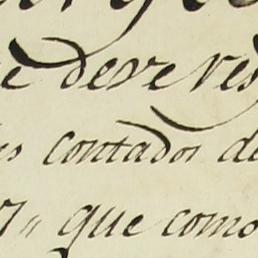 e deve res
es contador de
7,, que como